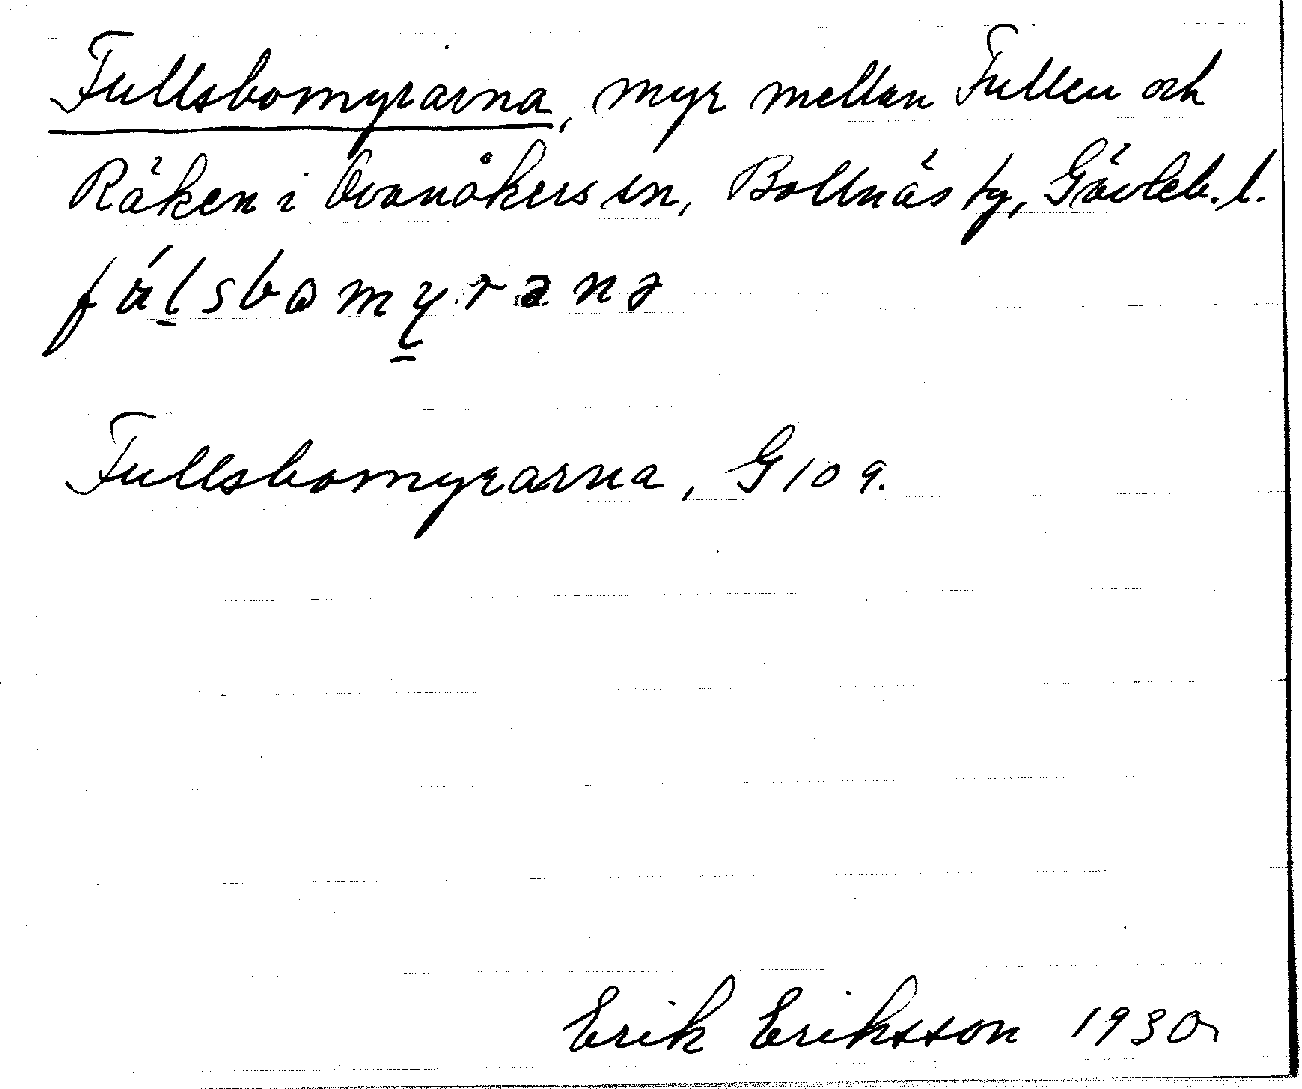 Fullsbomyrarna, myr mellan Fullen och
Räken i Ovanåkers sn, Bollnäs tg, Gävleb. l.
fúlsbomyrənə
Fullsbomyrarna, G 109.
Erik Eriksson 1930